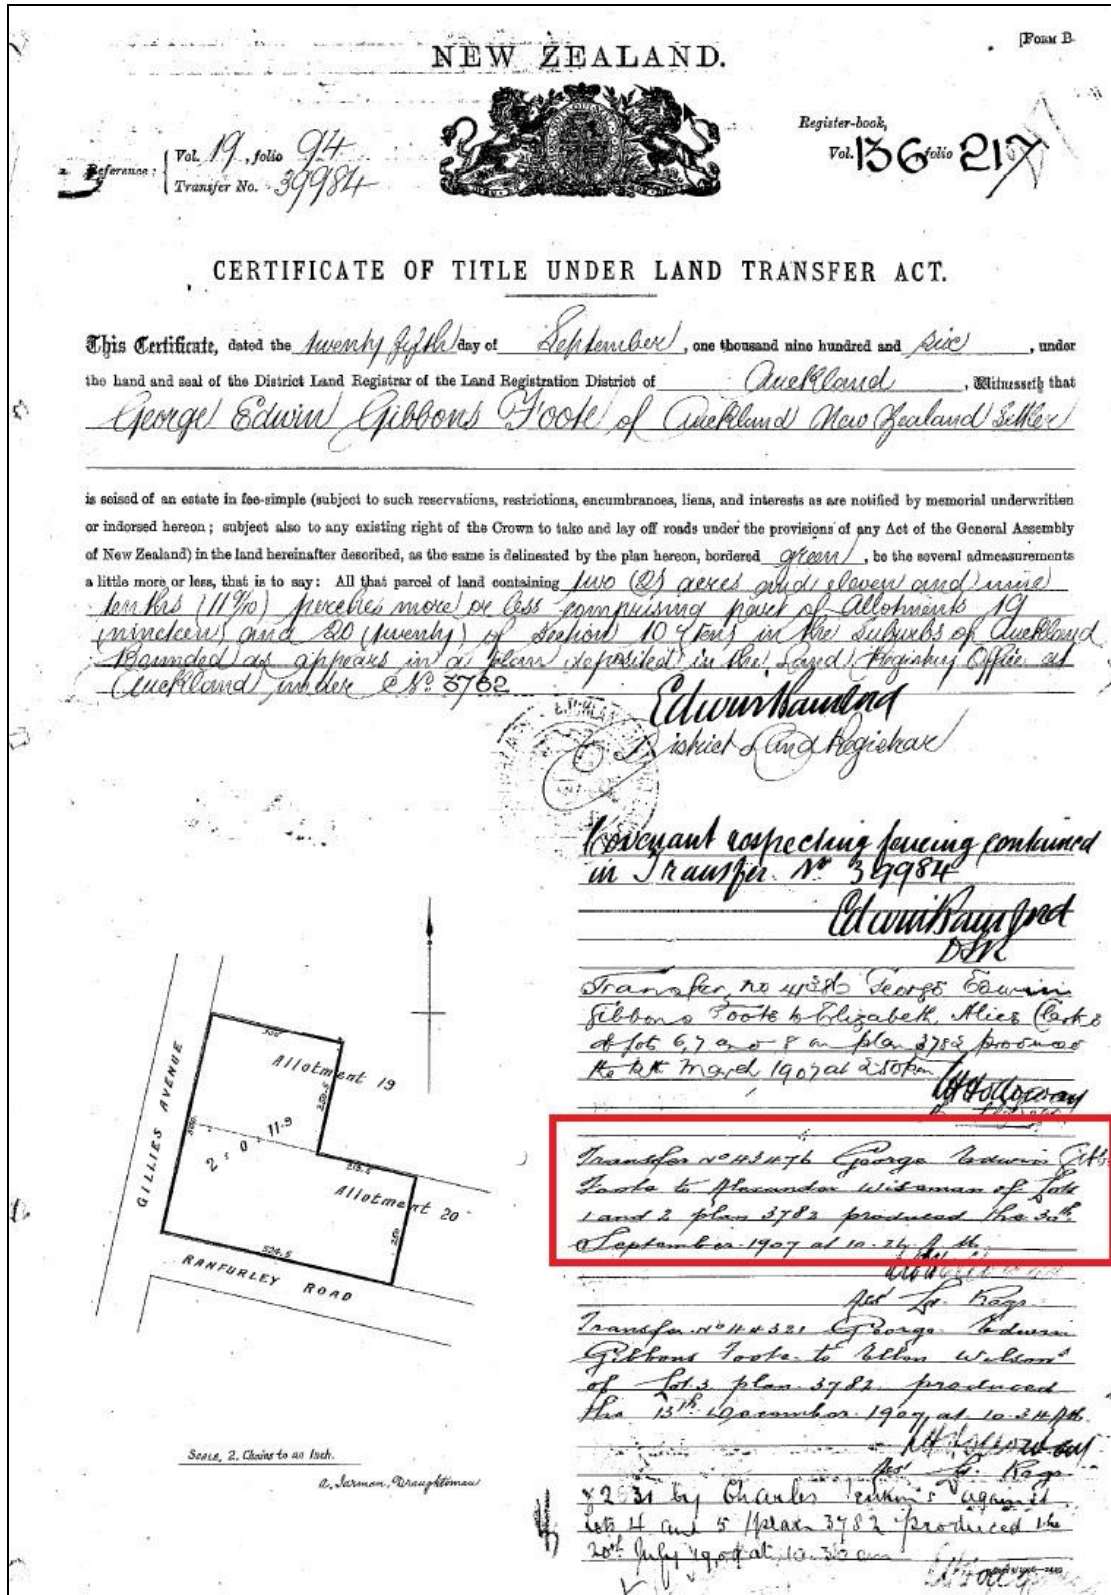 [FORM B.
NEW ZEALAND.
Reference:
Vol. 19, folio 94
Transfer No. 39984
Register-book,
Vol. 136 folio 217
CERTIFICATE OF TITLE UNDER LAND TRANSFER ACT.
This Certificate, dated the twenty fifth day of September, one thousand nine hundred and six, under
the hand and seal of the District Land Registrar of the Land Registration District of Auckland, Witnesseth that
George Edwin Gibbons Foote of Auckland New Zealand Settler
is seised of an estate in fee-simple (subject to such reservations, restrictions, encumbrances, liens, and interests as are notified by memorial underwritten
or indorsed hereon; subject also to any existing right of the Crown to take and lay off roads under the provisions of any Act of the General Assembly
of New Zealand) in the land hereinafter described, as the same is delineated by the plan hereon, bordered green, be the several admeasurements
a little more or less, that is to say: All that parcel of land containing two (2) acres and eleven and nine
tenths (11 9/10) perches more or less comprising part of Allotments 19
(nineteen) and 20 (twenty) of Section 10 (ten) in the Suburbs of Auckland
Bounded as appears in a plan deposited in the Land Registry Office at
Auckland under No. 3782
Edwin Bamford
District Land Registrar
Covenant respecting fencing contained
in Transfer No 39984
Edwin Bamford
DLR
Transfer no 41386 George Edwin
Gibbons Foote to Elizabeth Alice Clarke
of lots 6, 7 and 8 on plan 3782 produced
the March 1907 at 2.50 pm
Holloway
Transfer No 43476 George Edwin Gibbons
Foote to Alexander Wiseman of Lots
1 and 2 plan 3782 produced the 30th
September 1907 at 10.24 A.M.
Transfer No 44321 George Edwin
Gibbons Foote to Ellen Wilson
of Lot 3 plan 3782 produced
the 13th December 1907, at 10.34 AM.
by Charles Jenkins against
lots 4 and 5 plan 3782 produced the
20th July 1909 at 10.30 am
GILLIES AVENUE
Allotment 19
2 : 0 : 11.9
Allotment 20
300
250.5
215.5
250
500
524.5
RANFURLEY ROAD
Scale, 2. Chains to an Inch.
A. Jarman, Draughtsman